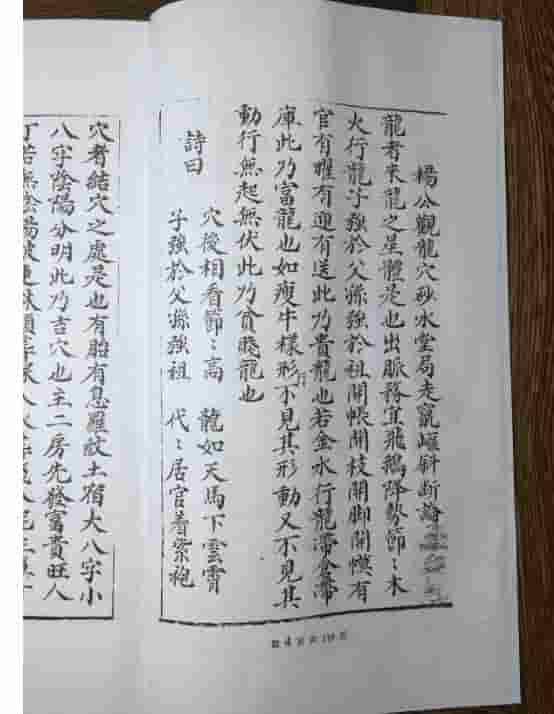 楊公觀龍穴砂水堂局走竄巉斜斷論
龍者来龍之星體是也出脈務宜飛鵝降勢節〻木
火行龍子強於父孫強於祖開帳開枝開脚開懷有
官有曜有迎有送此乃貴龍也若金水行龍帶倉帶
庫此乃富龍也如瘦牛樣形不見其形動又不見其
動行無起無伏此乃貧賤龍也
詩曰
穴後相看節〻高 龍如天馬下雲霄
子強於父孫強祖 代〻居官着紫袍
穴者結穴之處是也有胎有息羅紋土宿大八字小
八字陰陽分明此乃吉穴也主二房先發富貴旺人
丁若無陰陽